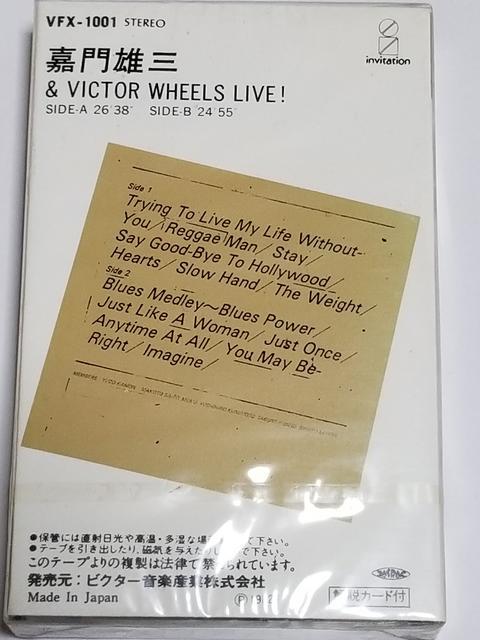 VFX-1001 STEREO
invitation
嘉門雄三
& VICTOR WHEELS LIVE!
SIDE-A 26'38" SIDE-B 24'55"
Side 1
Trying To Live My Life Without-
You/Reggae Man/Stay/
Say Good-Bye To Hollywood/
Hearts/Slow Hand/The Weight/
Side 2
Blues Medley~Blues Power/
Just Like A Woman/Just Once/
Anytime At All/You May Be-
Right/Imagine/
●保管には直射日光や高温・多湿な場 下さい。
●テープを引き出したり、磁気を与えた て下さい。
このテープよりの複製は法律で禁 られています。
発売元:ビクター音楽産業株式会社
Made In Japan
Ⓟ 19 2
詞カード付